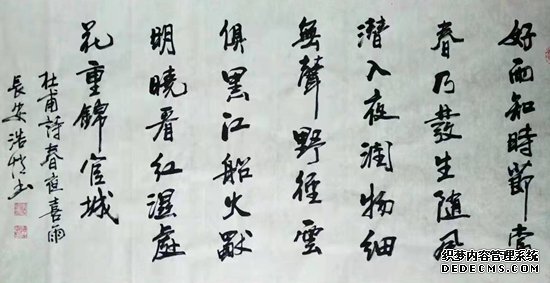 好雨知時節當
春乃發生隨風
潛入夜潤物細
無聲野徑雲
俱黑江船火
明曉看紅濕處
花重錦官城
杜甫詩春夜喜雨
長安浩书
织梦内容管理系统
DEDECMS.COM